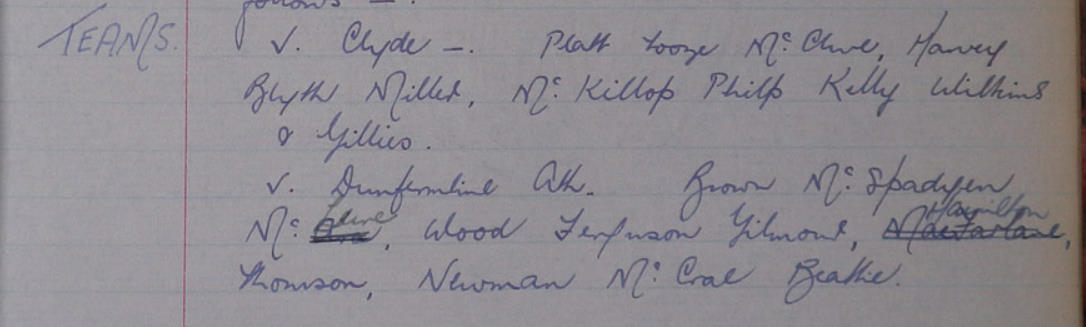 follows —.
TEAMS. v. Clyde —. Platt Tooze Mc. Clure, Harvey
Blyth Miller, Mc. Killop Philp Kelly Wilkins
& Gillies.
v. Dunfermline Ath. Brown Mc. Spadyen
Mc. Clure, Wood Ferguson Gilmour, Hamilton
Thomson, Newman Mc. Crae Beattie.